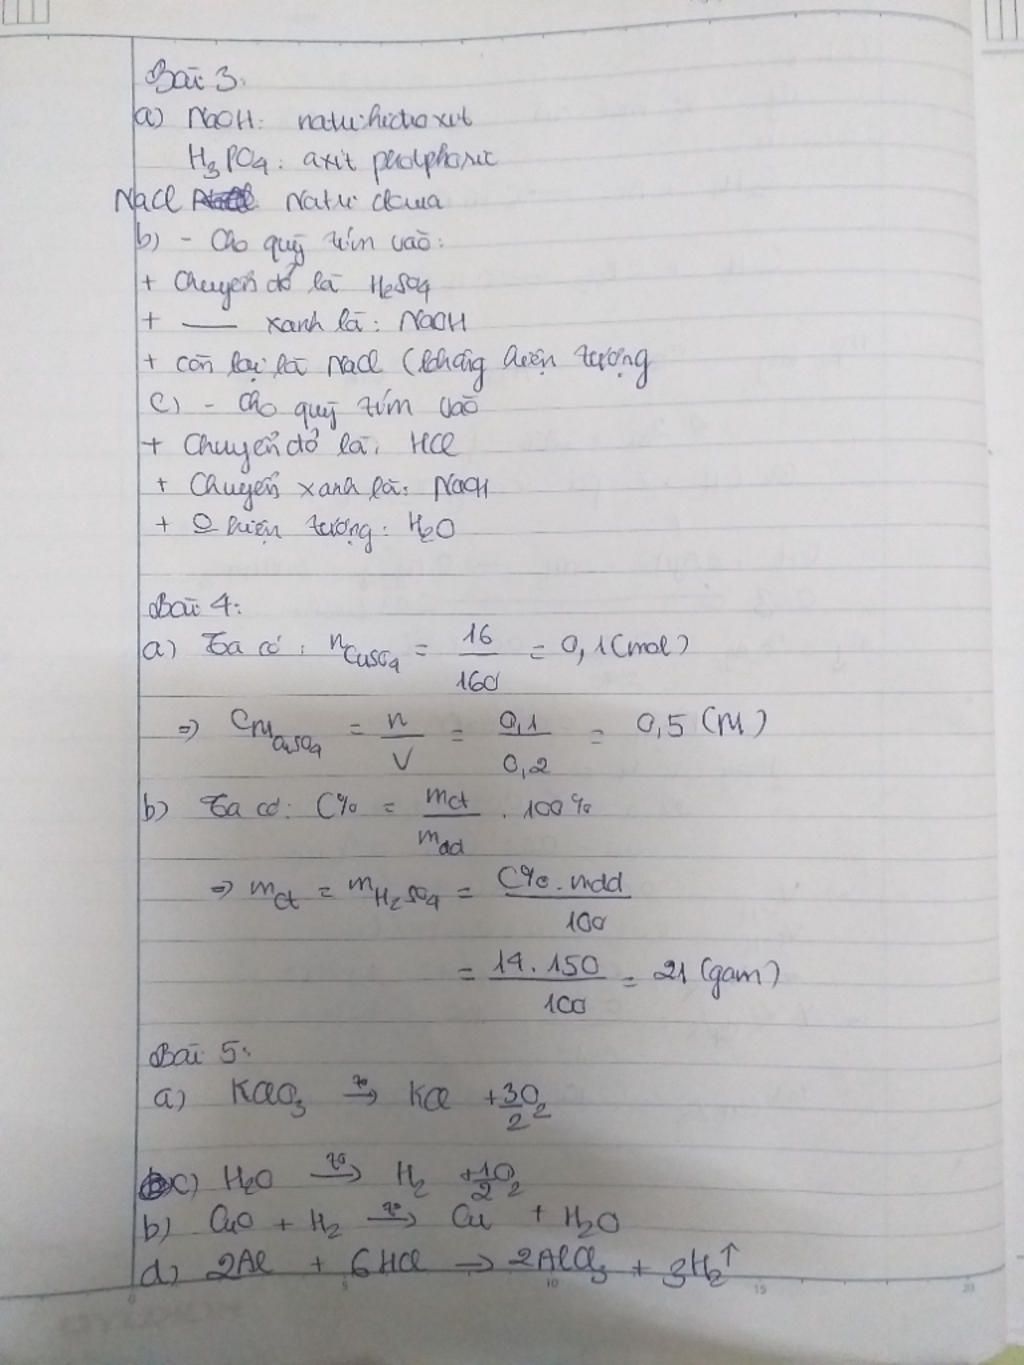 Bài 3:
a) NaOH: natri hiđroxit
H₃PO₄: axit photphoric
NaCl Natri clorua
b) - Cho quỳ tím vào:
+ Chuyển đỏ là H₂SO₄
+ — xanh là: NaOH
+ còn lại là NaCl (không hiện tượng
c) - Cho quỳ tím vào
+ Chuyển đỏ là: HCl
+ Chuyển xanh là: NaOH
+ O hiện tượng: H₂O
Bài 4:
a) Ta có: n_CuSO₄ = 16/160 = 0,1 (mol)
=> CM_CuSO₄ = n/V = 0,1/0,2 = 0,5 (M)
b) Ta có: C% = mct/mdd . 100%
=> mct = m_H₂SO₄ = C%.mdd/100
= 14.150/100 = 21 (gam)
Bài 5:
a) KClO₃ →(t°) KCl + 3/2 O₂
c) H₂O →(t°) H₂ + 1/2 O₂
b) CuO + H₂ →(t°) Cu + H₂O
d) 2Al + 6HCl → 2AlCl₃ + 3H₂↑